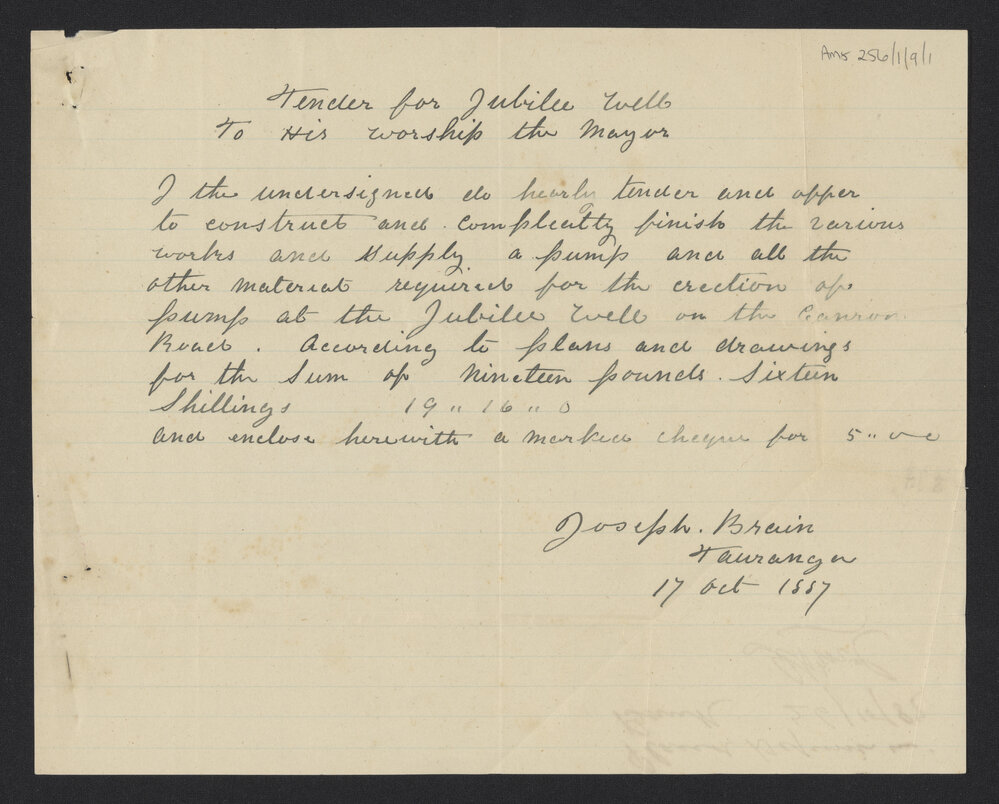 Ams 256/1/9/1
Tender for Jubilee Well
To His Worship the Mayor
I the undersigned do hearly tender and offer
to construct and compleatly finish the various
works and supply a pump and all the
other material required for the erection of
pump at the Jubilee Well on the
Road. According to plans and drawings
for the Sum of Nineteen pounds. Sixteen
Shillings 19 " 16 " 0
and enclose herewith a marked cheque for 5 " 0 0
Joseph. Brain
Tauranga
17 Oct 1887